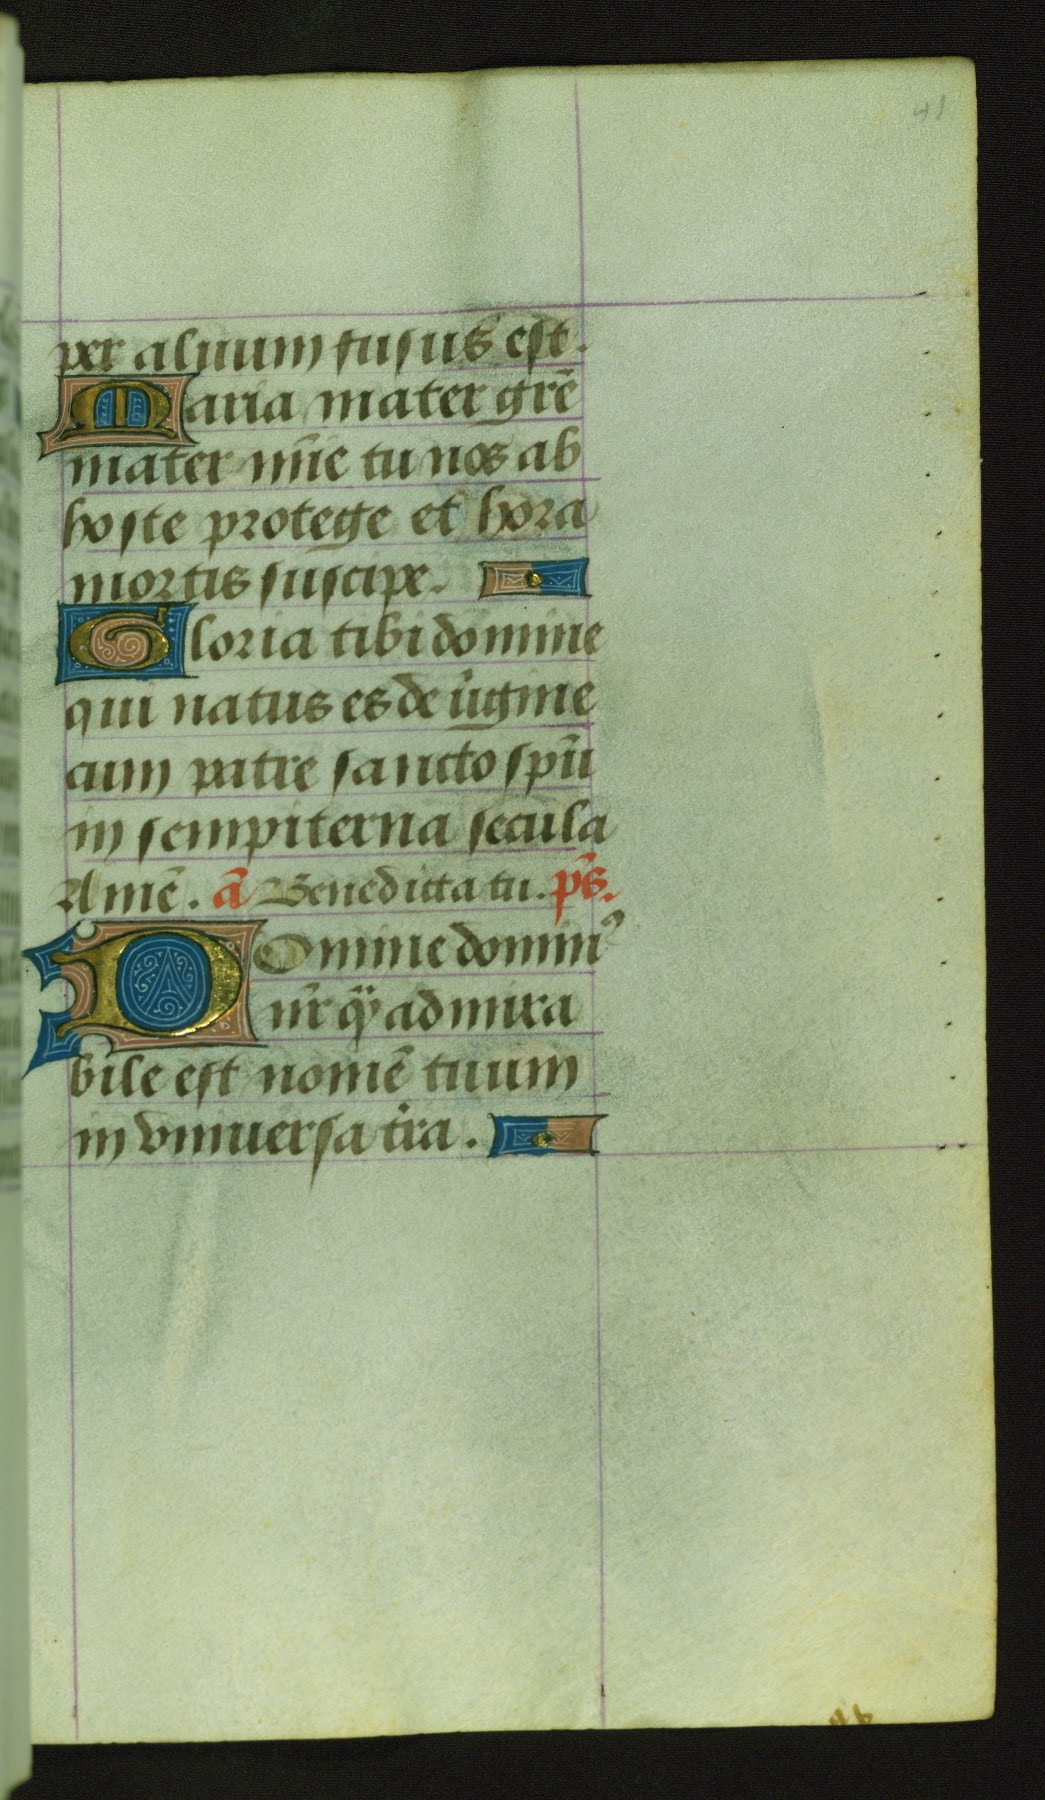 41
per aluum fusus est.
Maria mater grẽ
mater mĩe tu nos ab
hoste protege et hora
mortis suscipe.
Gloria tibi domine
qui natus es de ũgine
cum patre sancto spũ
in sempiterna secula
Amẽ. ã Benedicta tu. p̃s.
Domine domin⁹
nr̃ q̃ admira
bile est nomẽ tuum
in vniuersa tr̃a.